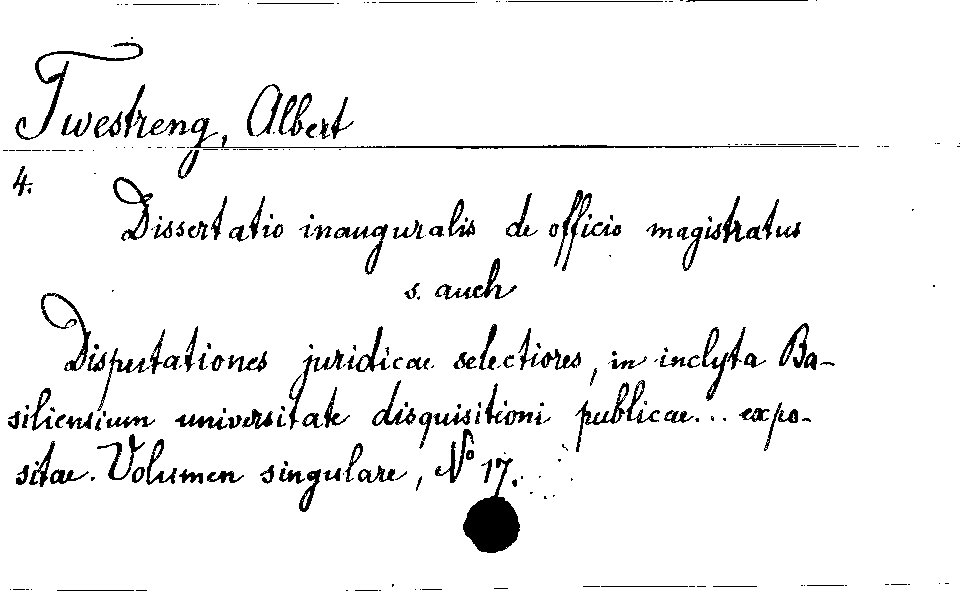 Twestreng, Albert
4.
Dissertatio inauguralis de officio magistratus
s. auch
Disputationes juridicae selectiores, in inclyta Ba-
siliensium universitate disquisitioni publicae... expo-
sitae. Volumen singulare, No 17.